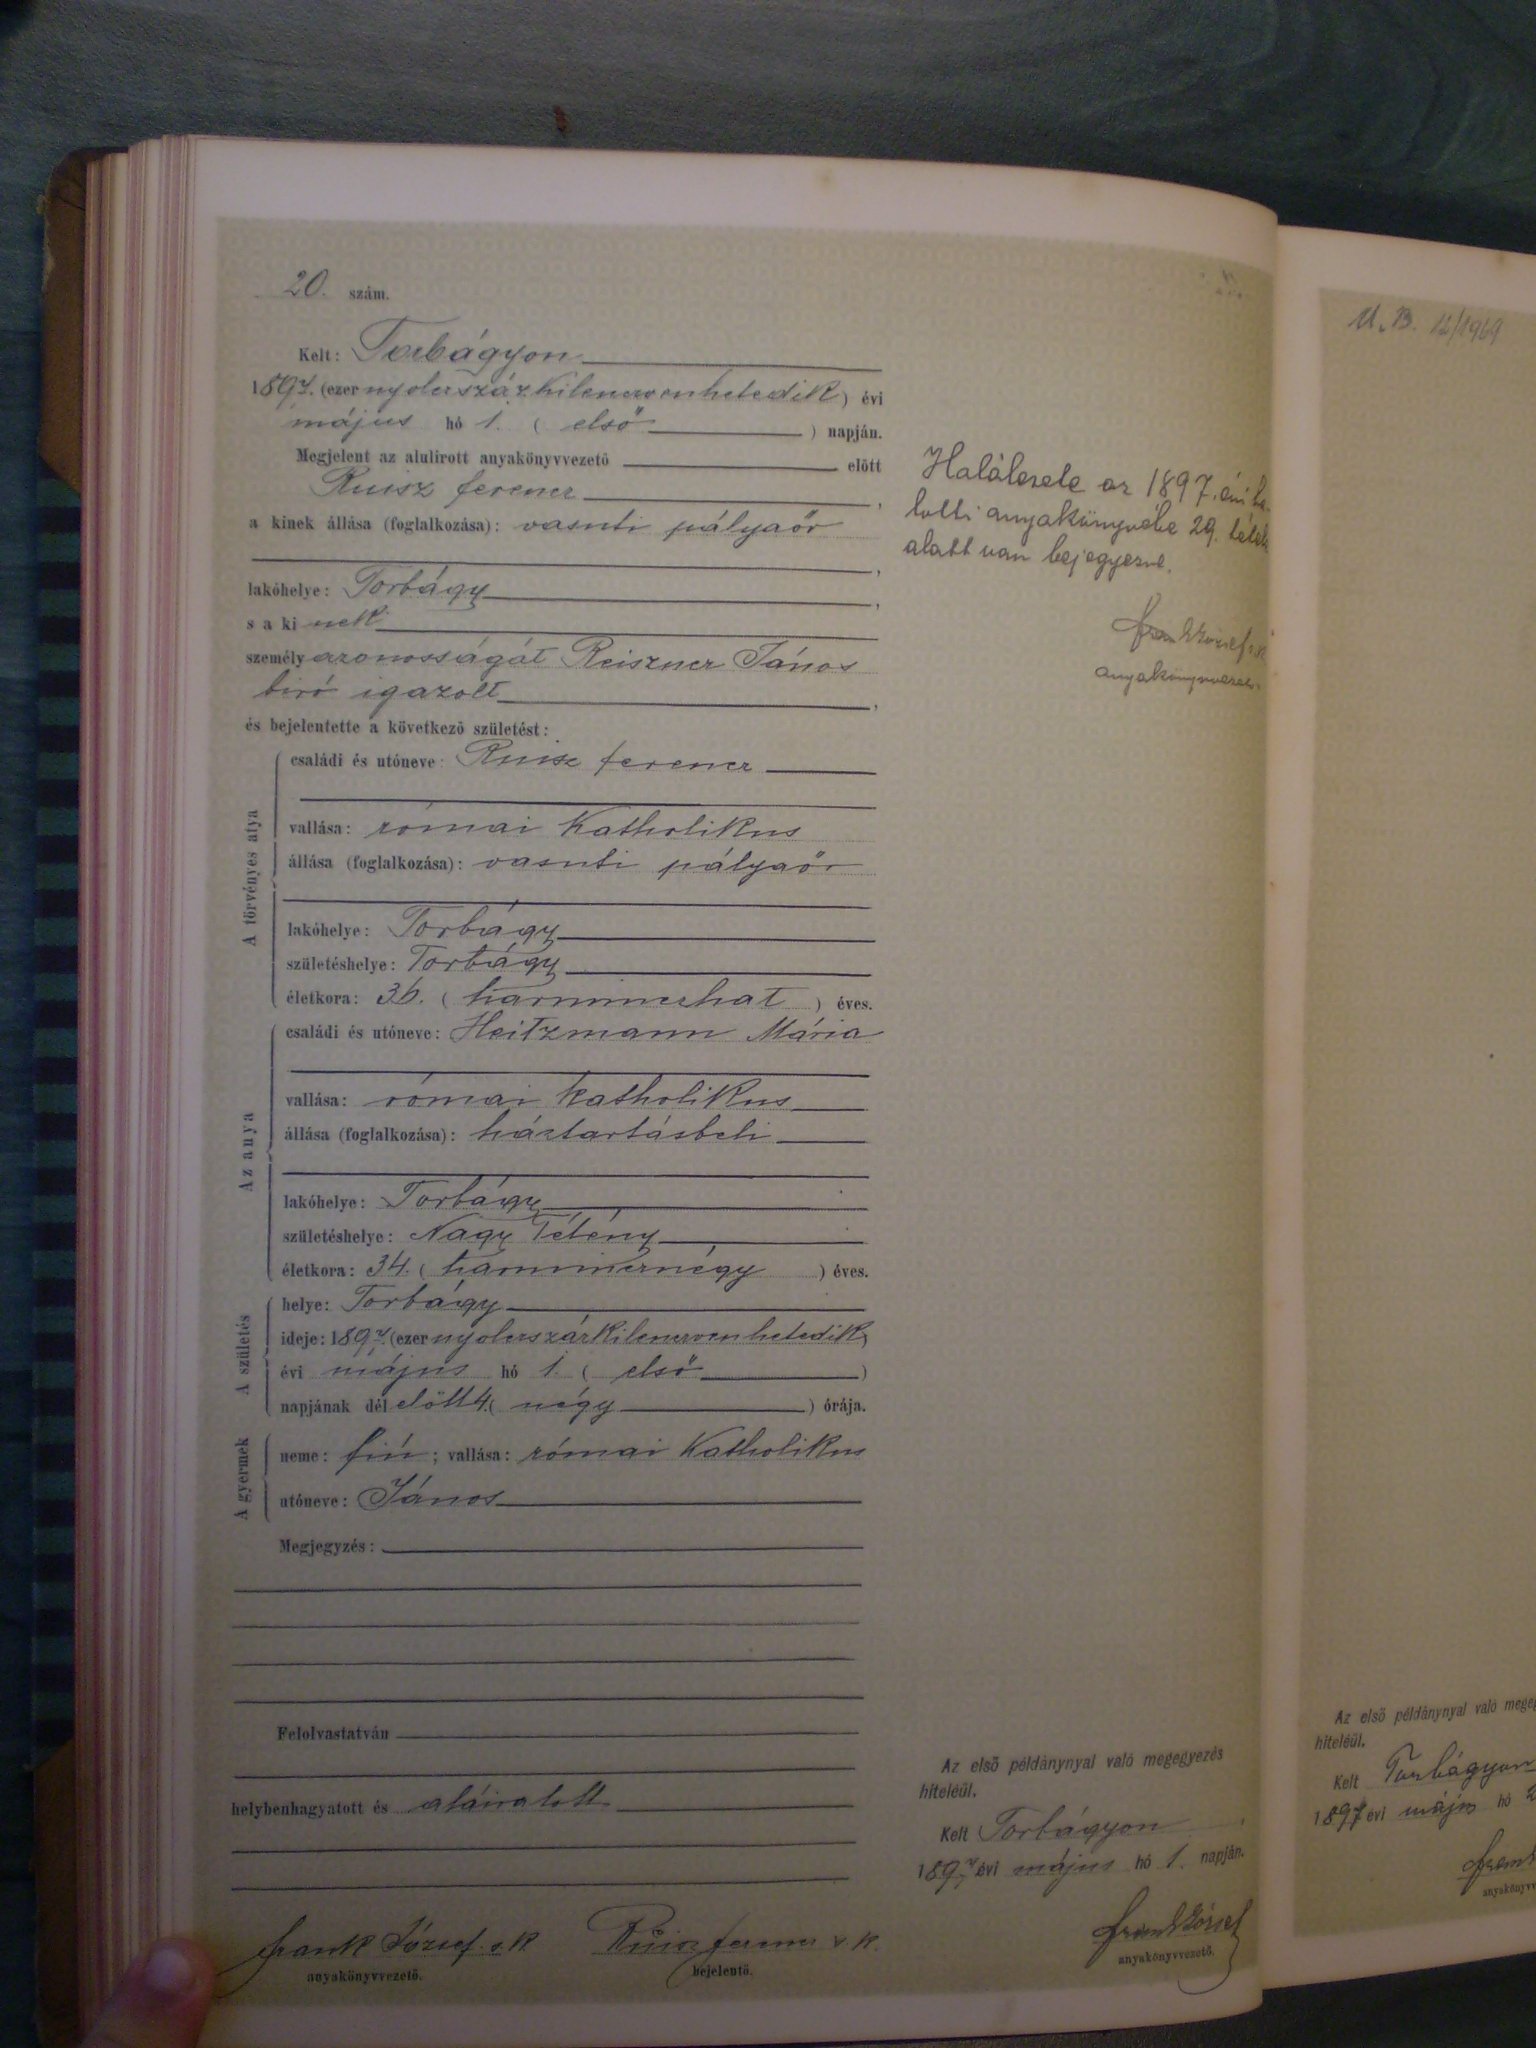 20. szám.
Kelt: Torbágyon
1897. (ezer nyolczszázkilenczvenhetedik) évi
május hó 1. ( első ) napján.
Megjelent az alulirott anyakönyvvezető előtt
Ruisz Ferencz ,
a kinek állása (foglalkozása): vasuti pályaőr
,
lakóhelye: Torbágy ,
s a ki nek
személyazonosságát Reiszner János
biró igazolt ,
és bejelentette a következő születést:
A törvényes atya
családi és utóneve: Ruisz Ferencz
vallása: római katholikus
állása (foglalkozása): vasuti pályaőr
lakóhelye: Torbágy
születéshelye: Torbágy
életkora: 36. ( harminczhat ) éves.
Az anya
családi és utóneve: Heitzmann Mária
vallása: római katholikus
állása (foglalkozása): háztartásbeli
lakóhelye: Torbágy
születéshelye: Nagy Tétény
életkora: 34. ( harmincznégy ) éves.
A születés
helye: Torbágy
ideje: 1897. (ezer nyolczszázkilenczvenhetedik)
évi május hó 1. ( első )
napjának dél előtt 4. ( négy ) órája.
A gyermek
neme: fiú ; vallása: római katholikus
utóneve: János
Megjegyzés:
Felolvastatván
helybenhagyatott és aláiratott
Frank József s.k.
anyakönyvvezető.
Ruisz Ferencz s.k.
bejelentő.
Halálesete az 1897. évi ha-
lotti anyakönyvébe 29. tétel
alatt van bejegyezve.
Frank József s.k.
anyakönyvvezető
Az első példánynyal való megegyezés
hiteléül.
Kelt Torbágyon
1897. évi május hó 1. napján.
Frank József
anyakönyvvezető.
U. B. 12/1969
Az első példánynyal való
hiteléül.
Kelt Torbágyon
1897 évi május hó 2
Frank